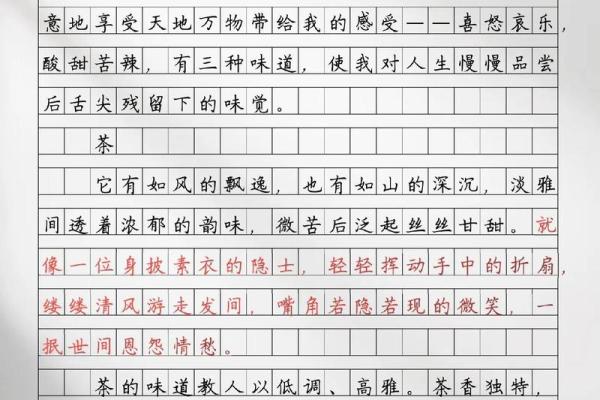 意地享受天地万物带给我的感受——喜怒哀乐，
酸甜苦辣，有三种味道，使我对人生慢慢品尝
后舌尖残留下的味觉。
茶
它有如风的飘逸，也有如山的深沉，淡雅
间透着浓郁的韵味，微苦后泛起丝丝甘甜。就
像一位身披素衣的隐士，轻轻挥动手中的折扇，
缕缕清风游走发间，嘴角若隐若现的微笑，一
抿世间恩怨情愁。
茶的味道教人以低调、高雅。茶香独特，